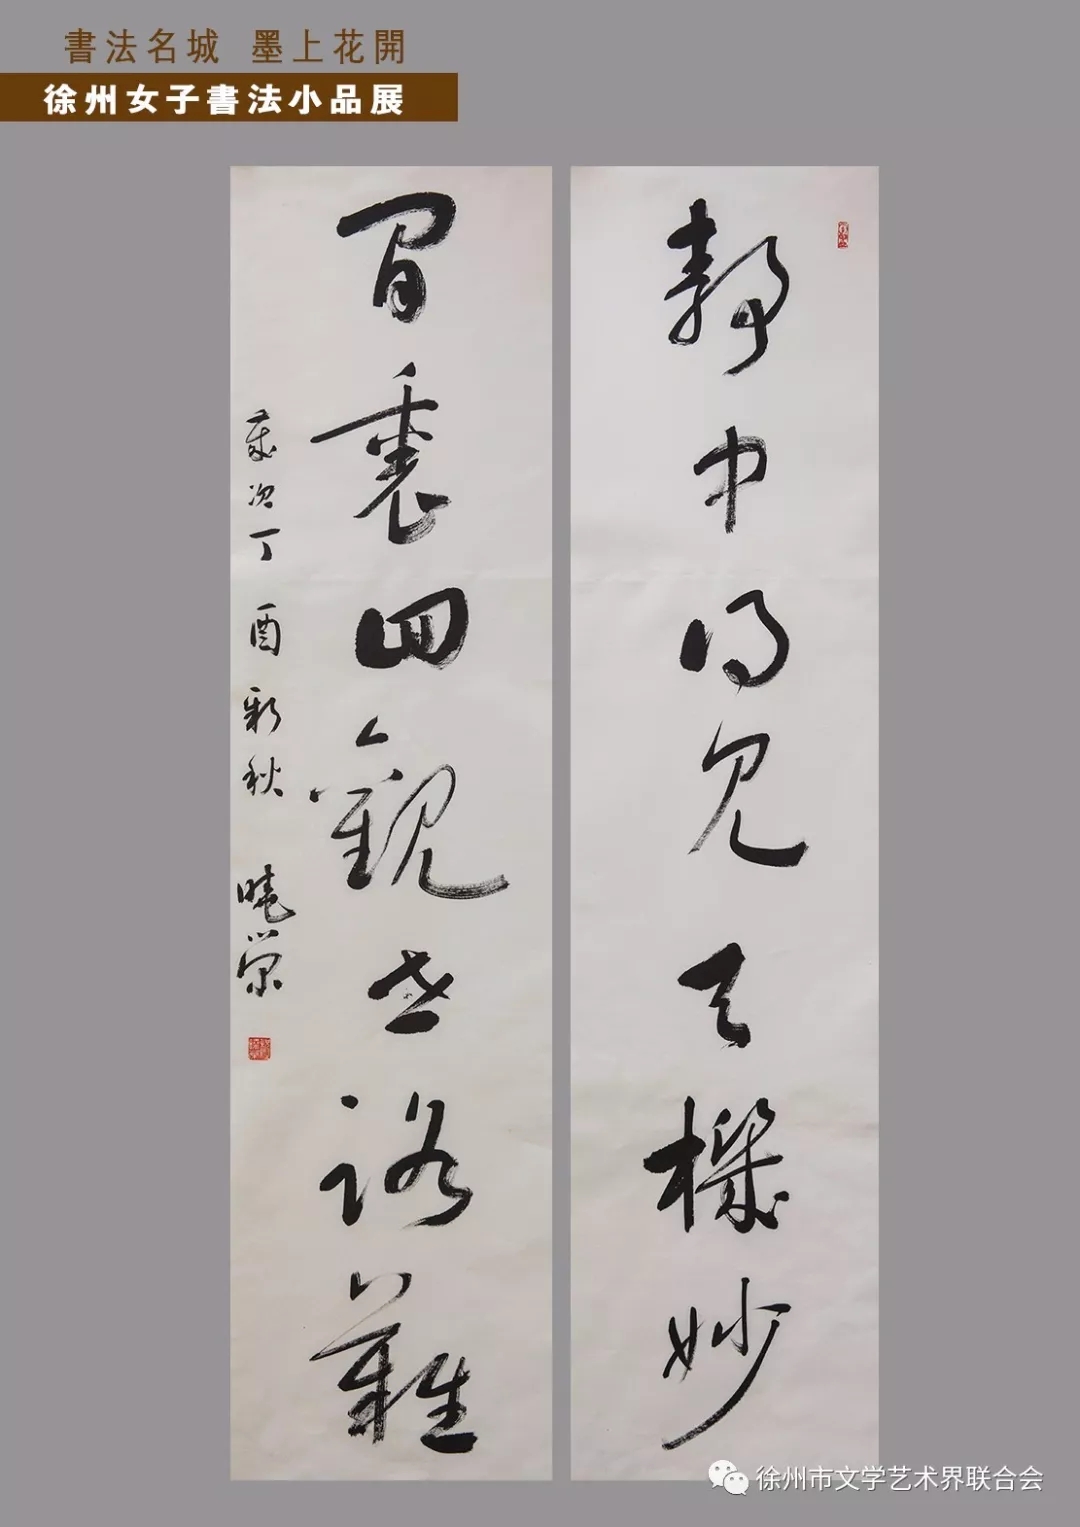 書法名城 墨上花開
徐州女子書法小品展
靜中得見天機妙
閒裏回觀世路難
歲次丁酉新秋 曉榮
徐州市文学艺术界联合会